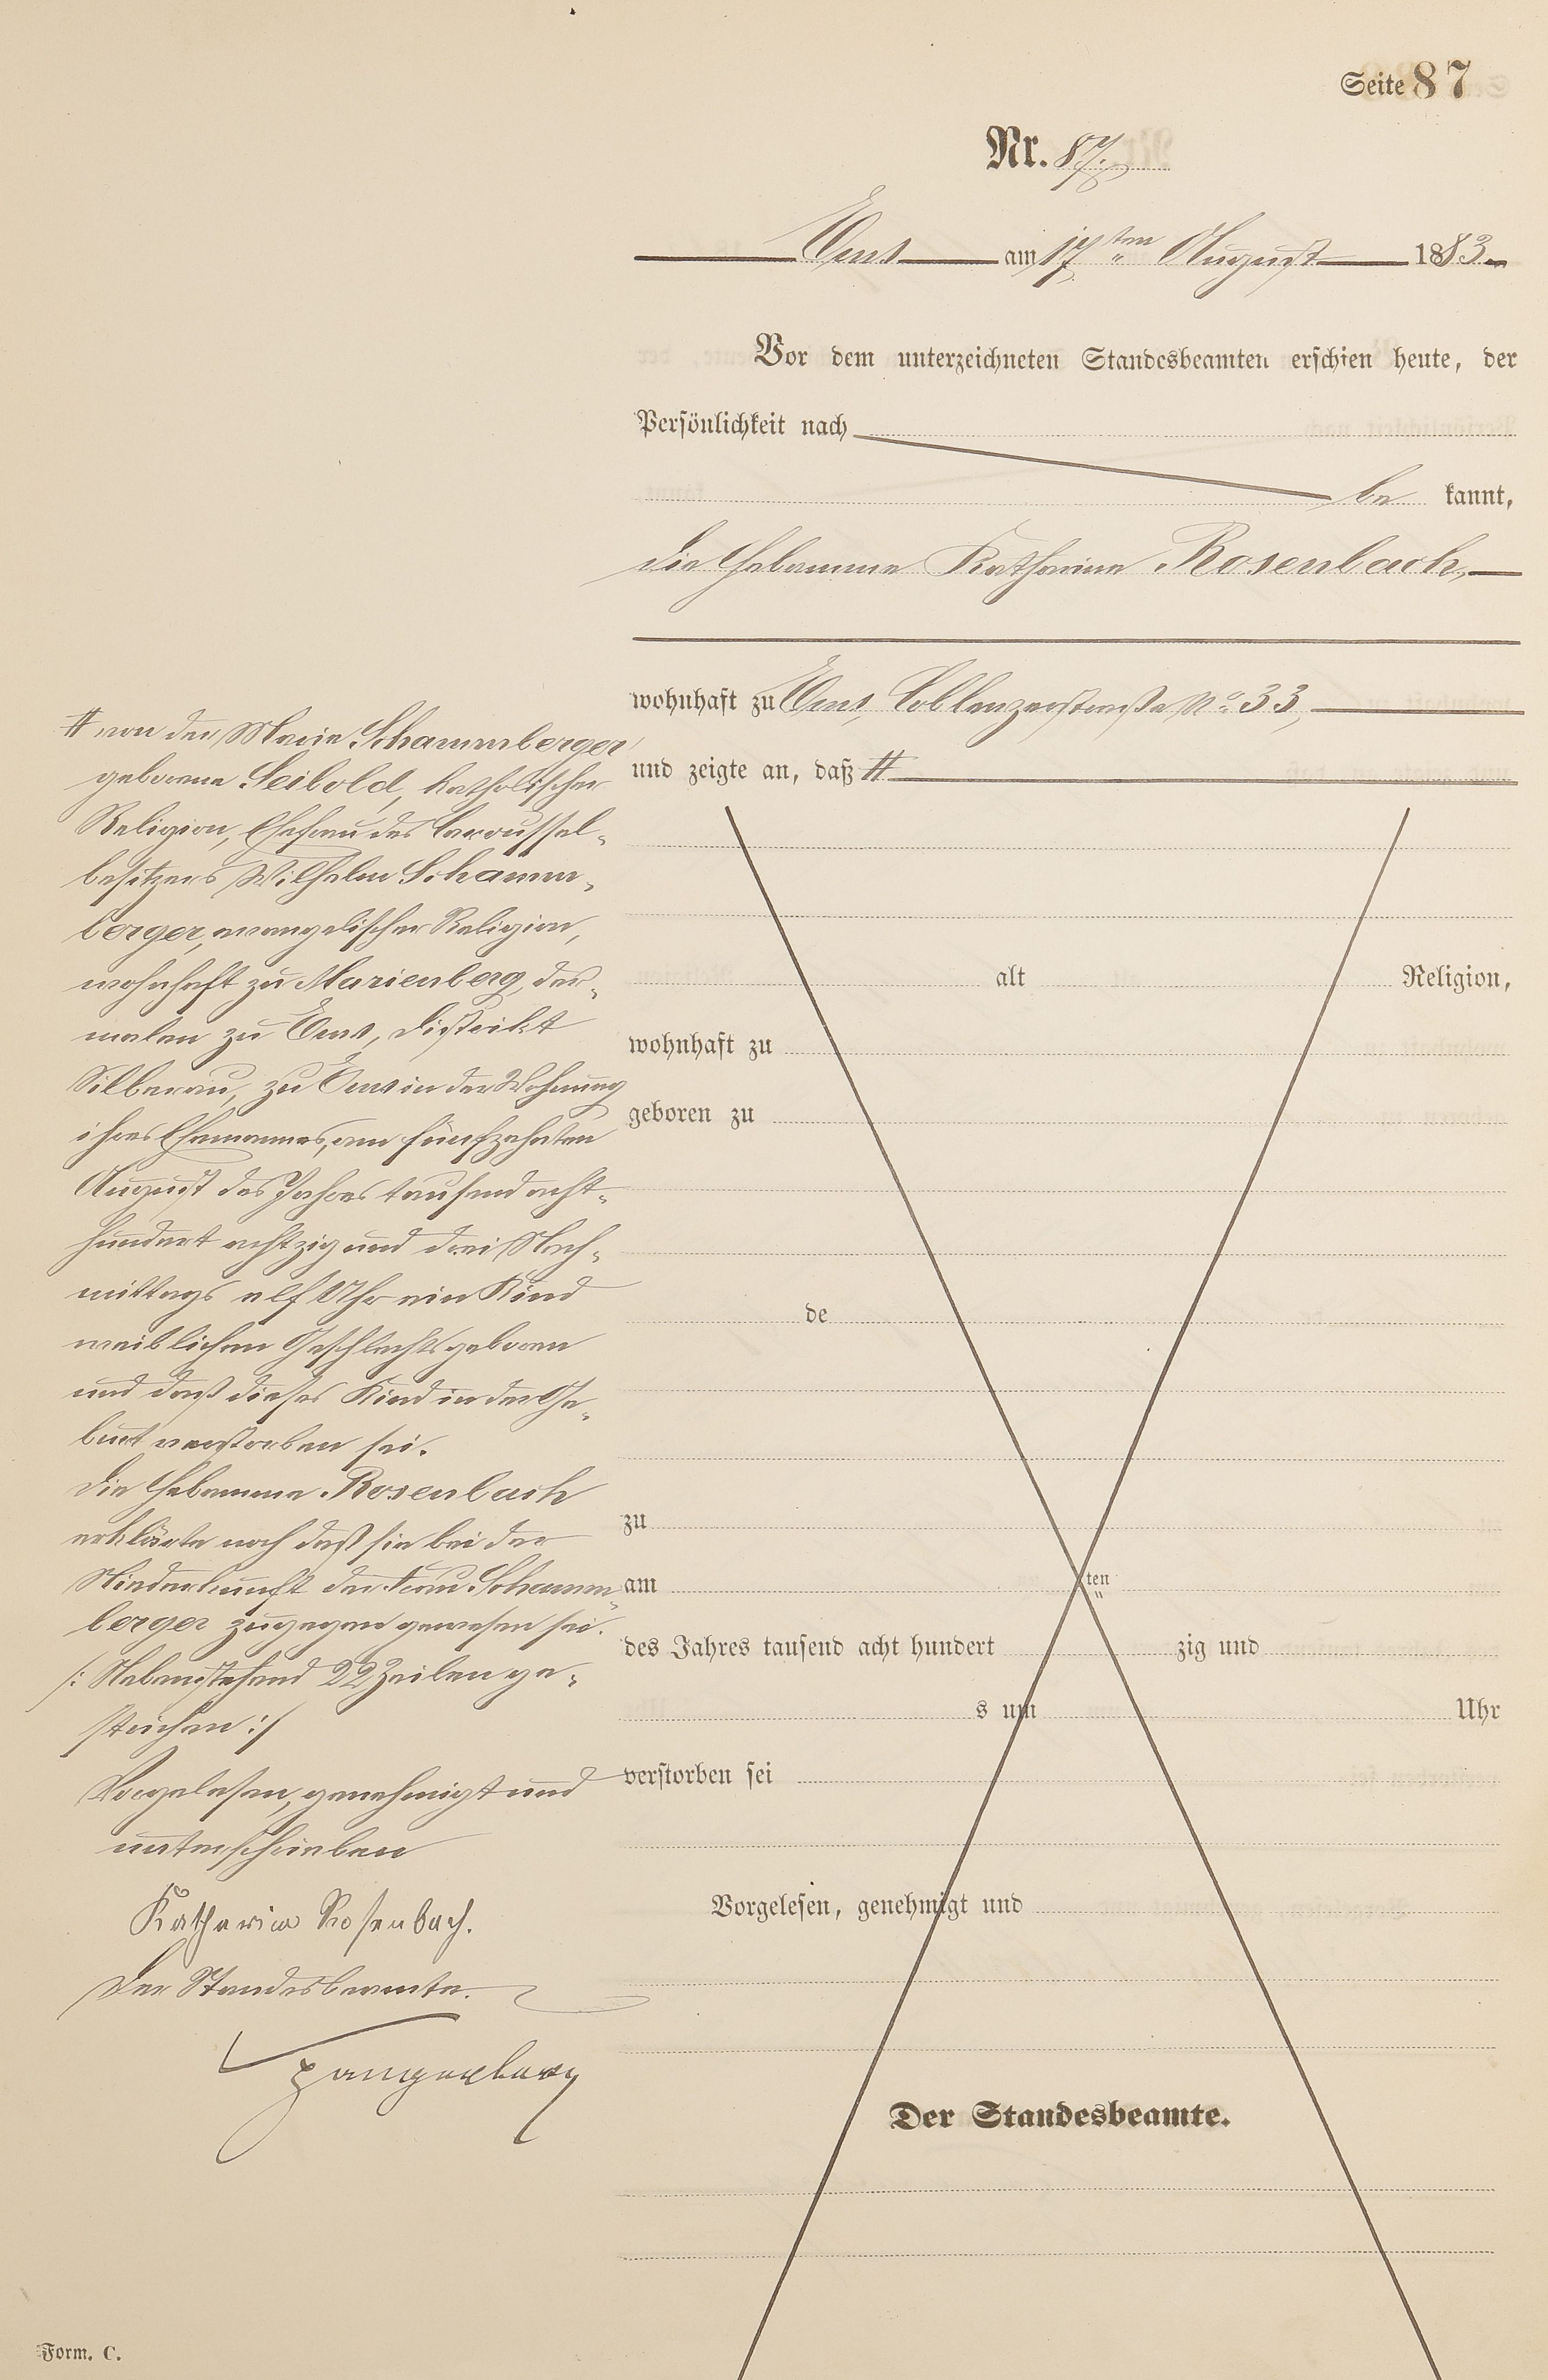 Seite 87
Nr. 87.
Ems am 17ten August 1883.
Vor dem unterzeichneten Standesbeamten erschien heute, der
Persönlichkeit nach
be kannt,
die Hebamme Katharina Rosenbach,
wohnhaft zu Ems, Coblenzerstraße No. 33,
und zeigte an, daß #
# von der Marie Schammberger
geborene Seibold, katholischer
Religion, Ehefrau des Caroussel-
besitzers Wilhelm Schamm-
berger, evangelischer Religion,
wohnhaft zu Marienberg, der-
malen zu Ems, Distrikt
Silberau, zu Ems in der Wohnung
ihres Ehemannes, am fünfzehnten
August des Jahres tausend acht-
hundert achtzig und drei Nach-
mittags elf Uhr ein Kind
weiblichen Geschlechts geboren
und daß dieses Kind in der Ge-
burt verstorben sei.
Die Hebamme Rosenbach
erklärte noch daß sie bei der
Niederkunft der Frau Schamm-
berger zugegen gewesen sei.
/: Nebenstehend 22 Zeilen ge-
strichen :/
Vorgelesen, genehmigt und
unterschrieben
Katharina Rosenbach.
Der Standesbeamte.
Spangenberg
alt Religion,
wohnhaft zu
geboren zu
de
zu
am ten
des Jahres tausend acht hundert zig und
s um Uhr
verstorben sei
Vorgelesen, genehmigt und
Der Standesbeamte.
Form. C.